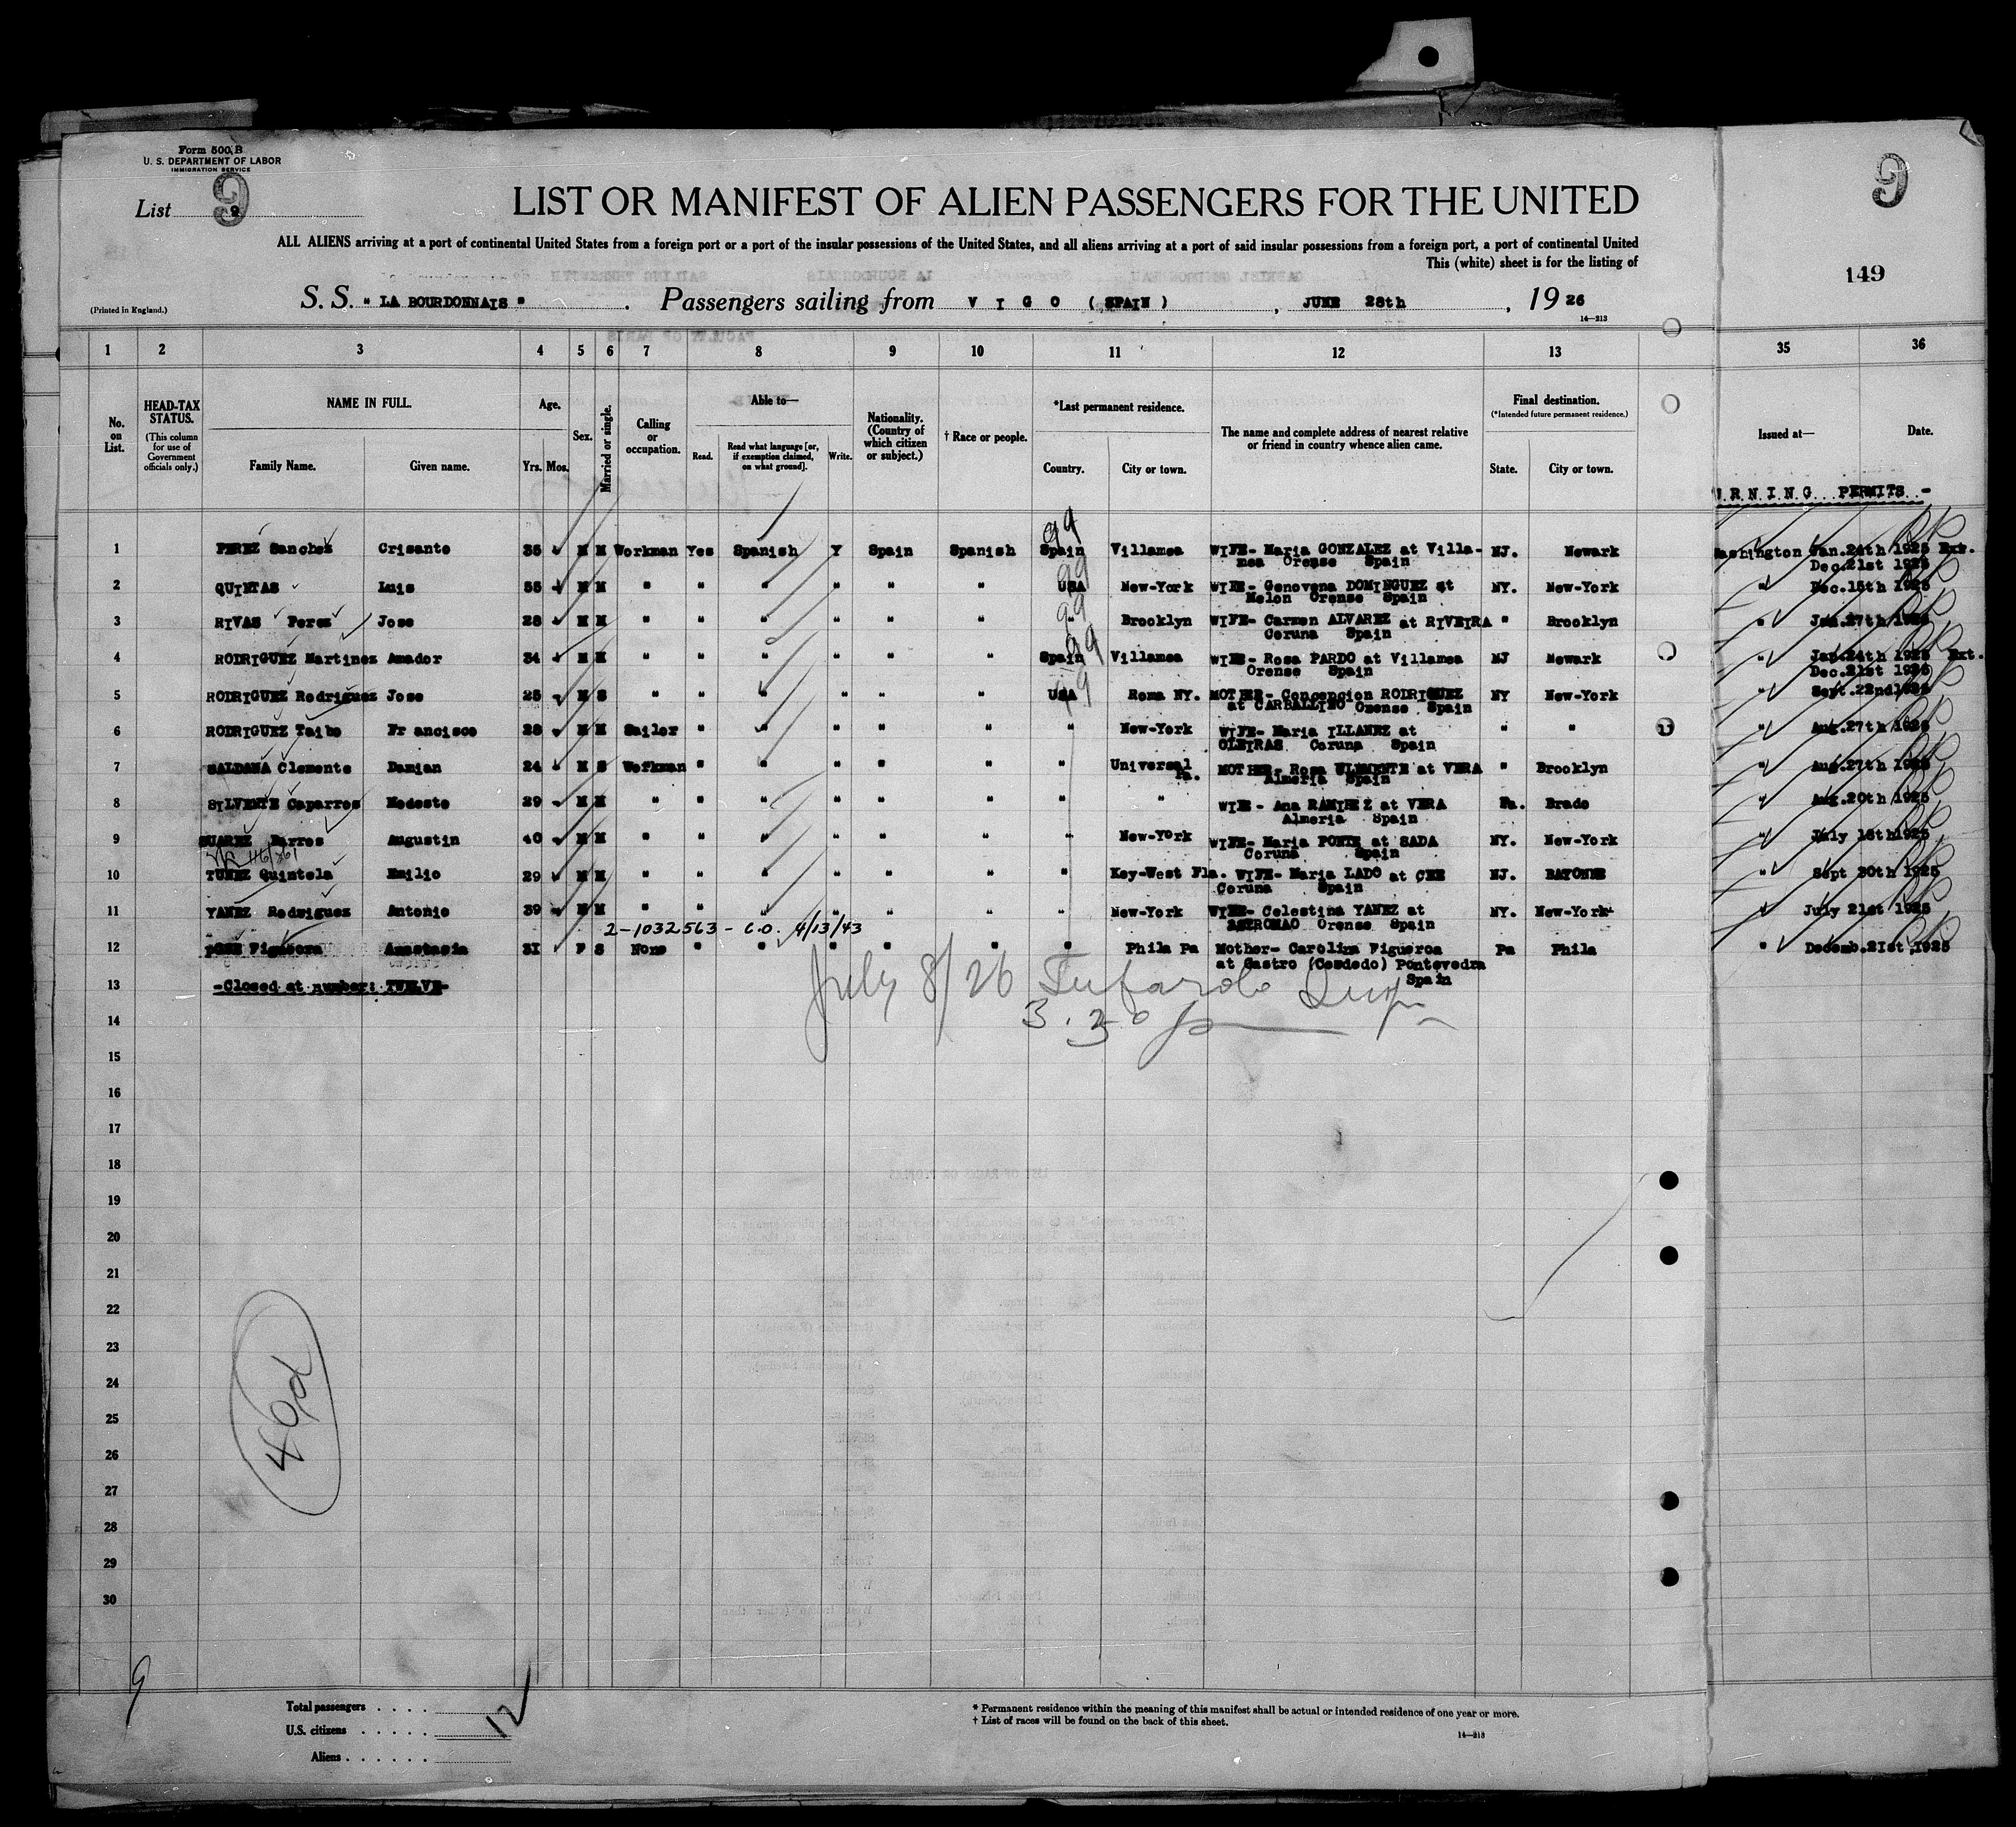 Form 500 B
U. S. DEPARTMENT OF LABOR
IMMIGRATION SERVICE
List 9
9
LIST OR MANIFEST OF ALIEN PASSENGERS FOR THE UNITED
ALL ALIENS arriving at a port of continental United States from a foreign port or a port of the insular possessions of the United States, and all aliens arriving at a port of said insular possessions from a foreign port, a port of continental United
This (white) sheet is for the listing of
149
(Printed in England.)
S. S. " LA BOURDONNAIS " . Passengers sailing from V I G O ( SPAIN ) , JUNE 28th , 19 26
14—213
1 2 3 4 5 6 7 8 9 10 11 12 13 35 36
No. on List.
HEAD-TAX STATUS.
(This column for use of Government officials only.)
NAME IN FULL.
Family Name. Given name.
Age.
Yrs. Mos.
Sex.
Married or single.
Calling or occupation.
Able to—
Read. Read what language [or, if exemption claimed, on what ground]. Write.
Nationality. (Country of which citizen or subject.)
† Race or people.
*Last permanent residence.
Country. City or town.
The name and complete address of nearest relative or friend in country whence alien came.
Final destination.
(*Intended future permanent residence.)
State. City or town.
Issued at— Date.
U.R.N.I.N.G...PERMITS..-
1 PEREZ Sanchez Crisanto 35 M M Workman Yes Spanish Y Spain Spanish Spain Villamea WIFE- Maria GONZALEZ at Villa- NJ. Newark Washington Jan.24th 1925 Ext.
mea Orense Spain Dec.21st 1925
2 QUINTAS Luis 55 M M " " " " " " USA New-York WIFE- Genovena DOMINGUEZ at NY. New-York " Dec.15th 1925
Melon Orense Spain
3 RIVAS Perez Jose 28 M M " " " " " " " Brooklyn WIFE- Carmen ALVAREZ at RIVEIRA " Brooklyn " Jan.27th
Coruna Spain
4 RODRIGUEZ Martinez Amador 34 M M " " " " " " Spain Villamea WIFE- Rosa PARDO at Villamea NJ Newark " Jan.24th 1925 Ext.
Orense Spain Dec.21st 1925
5 RODRIGUEZ Rodriguez Jose 25 M S " " " " " " USA Roma NY. MOTHER- Concepcion RODRIGUEZ NY New-York " Sept.22nd
at CARBALLINO Orense Spain
6 RODRIGUEZ Taibo Fr ancisco 28 M M Sailor " " " " " " New-York WIFE- Maria ILLANEZ at " " " Aug.27th 1925
OLEIRAS Coruna Spain
7 SALDANA Clemente Damian 24 M S Workman " " " " " " Universal Pa. MOTHER- Rosa CLEMENTE at VERA " Brooklyn " Aug.27th 1925
Almeria Spain
8 SILVENTE Caparros Modesto 29 M M " " " " " " " " WIFE - Ana RAMIREZ at VERA Pa. Brado " Aug.20th 1925
Almeria Spain
9 SUAREZ Barros Augustin 40 M M " " " " " " " New-York WIFE- Maria PONTE at SADA NY. New-York " July 15th1925
Coruna Spain
10 TUNEZ Quintela Emilio 29 M M " " " " " " " Key-West Fla. WIFE- Maria LADO at CEE NJ. BAYONNE " Sept 30th 1925
Coruna Spain
11 YANEZ Rodriguez Antonio 39 M M " " " " " " " New-York WIFE- Celestina YANEZ at NY. New-York " July 21st 1925
Orense Spain
2-1032563 - C.O. 4/13/43
12 Figueroa Anastasia 31 F S None " " " " " " Phila Pa Mother- Carolina Figueroa Pa Phila " Decemb.21st,1925
at Castro (Cerdedo) Pontevedra
Spain
13 -Closed at number: TWELVE-
July 8/26
3.30 p
14
15
16
17
18
19
20
21
22
23
24
25
26
27
28
29
30
9
Total passengers . . . .
U.S. citizens . . . . .
Aliens . . . . . .
12
* Permanent residence within the meaning of this manifest shall be actual or intended residence of one year or more.
† List of races will be found on the back of this sheet.
14—213